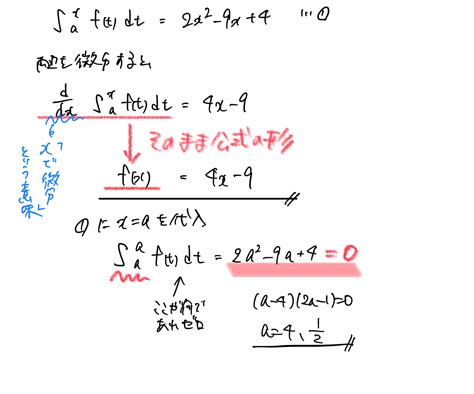 ∫ₐˣ f(t) dt = 2x²-9x+4 …①
両辺を微分すると
d/dx ∫ₐˣ f(t) dt = 4x-9
「xで微分」という意味
そのまま公式の形
f(x) = 4x-9
①に x=a を代入
∫ₐᵃ f(t) dt = 2a²-9a+4 = 0
ここが何であれゼロ
(a-4)(2a-1)=0
a=4、1/2